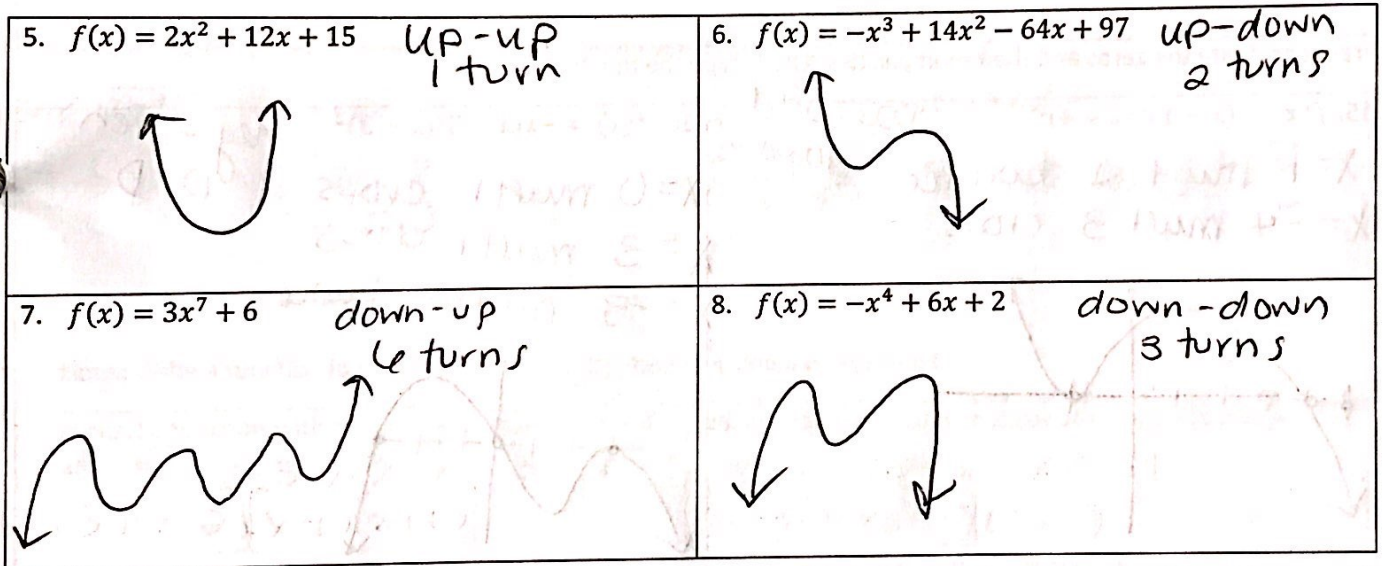 5. f(x) = 2x² + 12x + 15 up-up
1 turn
6. f(x) = −x³ + 14x² − 64x + 97 up-down
2 turns
7. f(x) = 3x⁷ + 6 down-up
6 turns
8. f(x) = −x⁴ + 6x + 2 down-down
3 turns